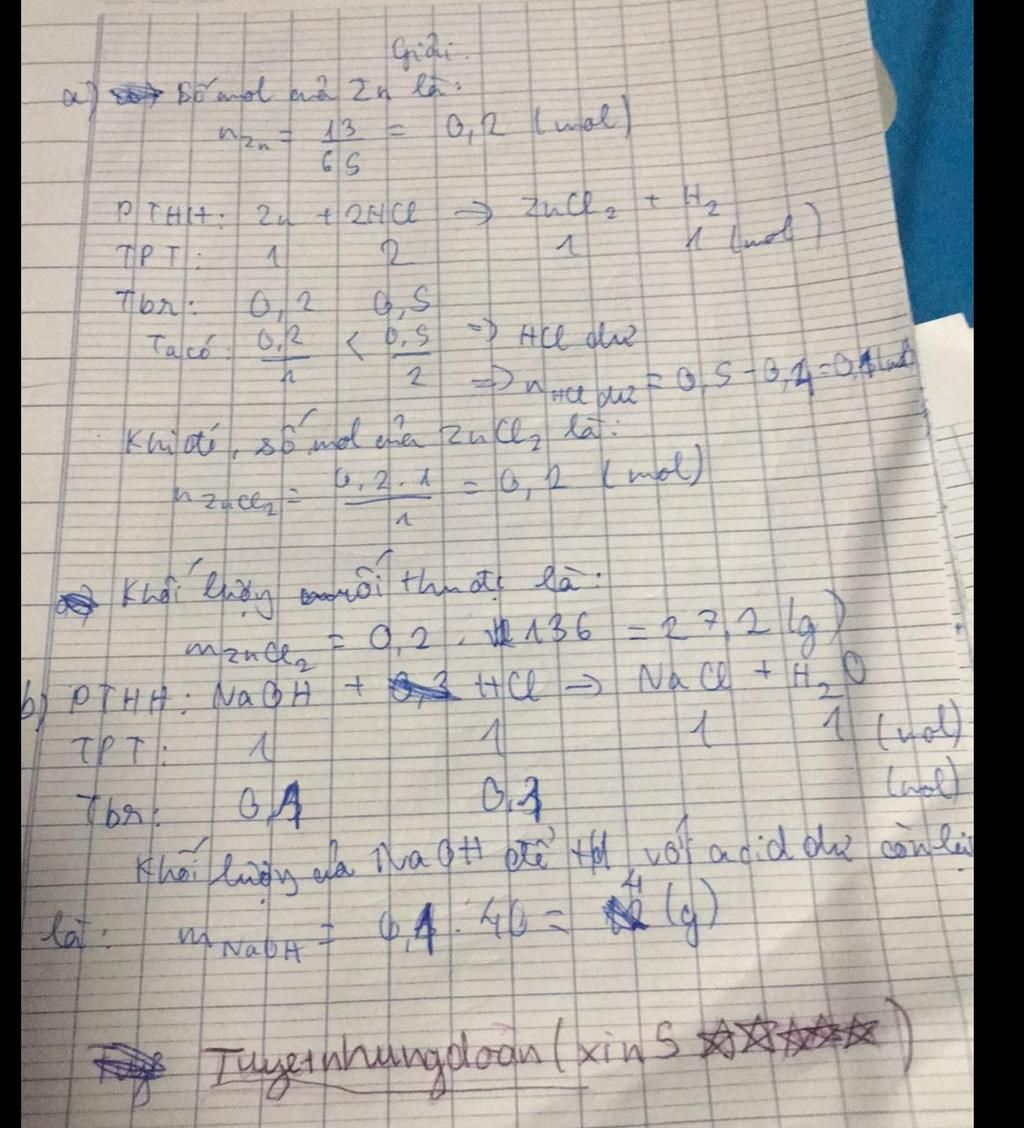 Giải.
a) Số mol của Zn là:
nZn = 13/65 = 0,2 (mol)
PTHH: Zn + 2HCl => ZnCl2 + H2
TPT: 1 2 1 1 (mol)
Tbr: 0,2 0,5
Ta có: 0,2/1 < 0,5/2 => HCl dư
=> nHCl dư = 0,5 - 0,4 = 0,1 (mol)
Khi đó, số mol của ZnCl2 là:
nZnCl2 = 0,2.1/1 = 0,2 (mol)
Khối lượng muối thu đc là:
mZnCl2 = 0,2 . 136 = 27,2 (g)
b) PTHH: NaOH + HCl => NaCl + H2O
TPT: 1 1 1 1 (mol)
Tbr: 0,1 0,1 (mol)
Khối lượng của NaOH để với acid dư còn lại
là: mNaOH = 0,1 . 40 = 4 (g)
Tuyetnhungdoan (xin 5 ☆☆☆☆☆)